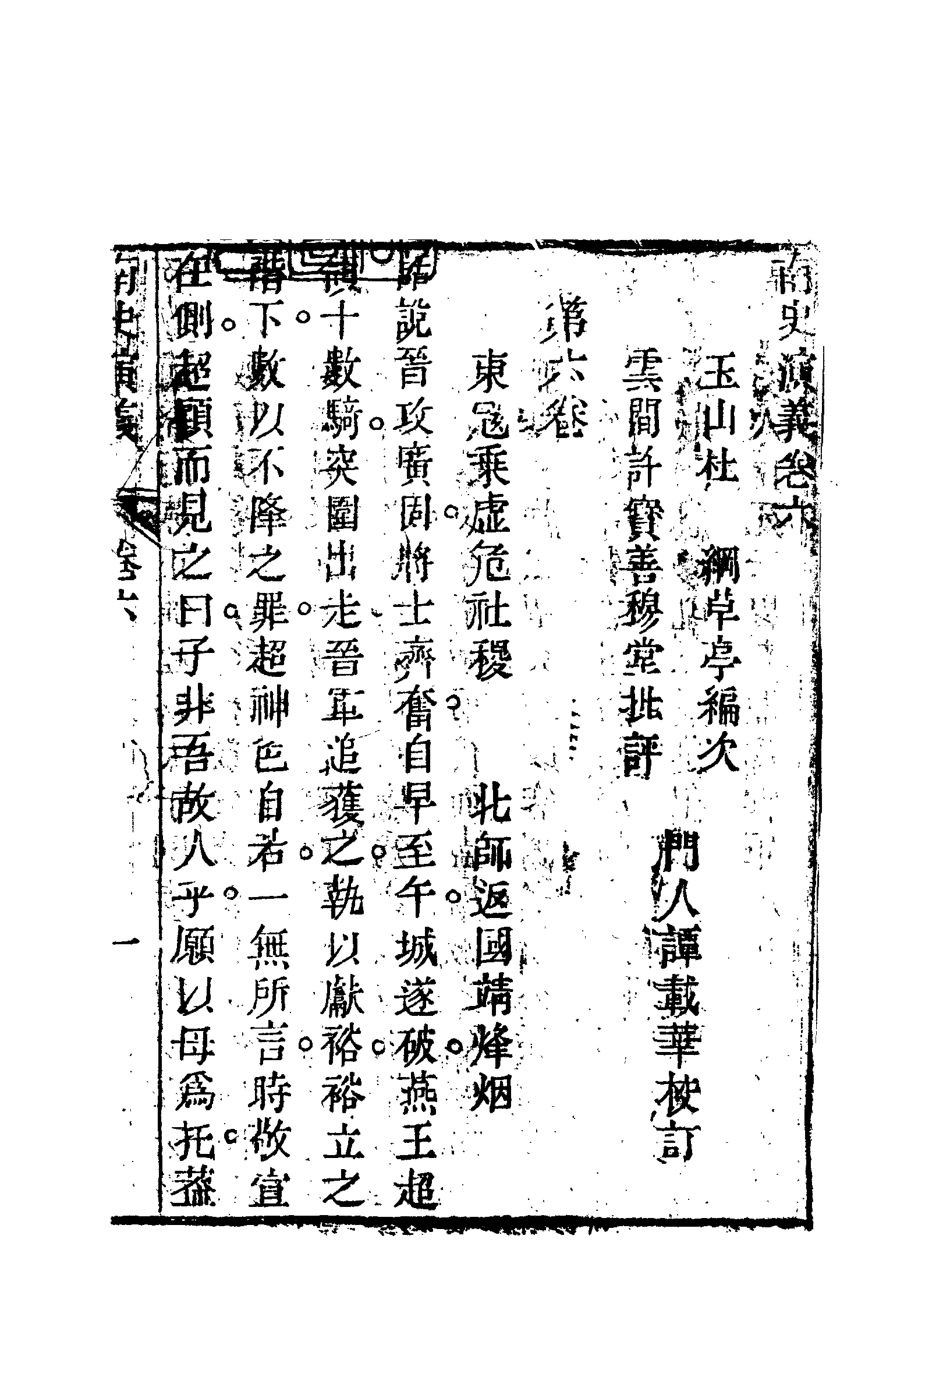 南史演義卷六
玉山杜　綱草亭編次
雲間許寶善穆堂批評
門人譚載華校訂
第六卷
東寇乘虛危社稷　北師返國靖烽烟
話說晉攻廣固將士齊奮自早至午城遂破燕王超
領十數騎突圍出走晉軍追獲之執以獻裕裕立之
階下數以不降之罪超神色自若一無所言時敬宣
在側超顧而見之曰子非吾故人乎願以母爲托蓋
南史演義　卷六　一